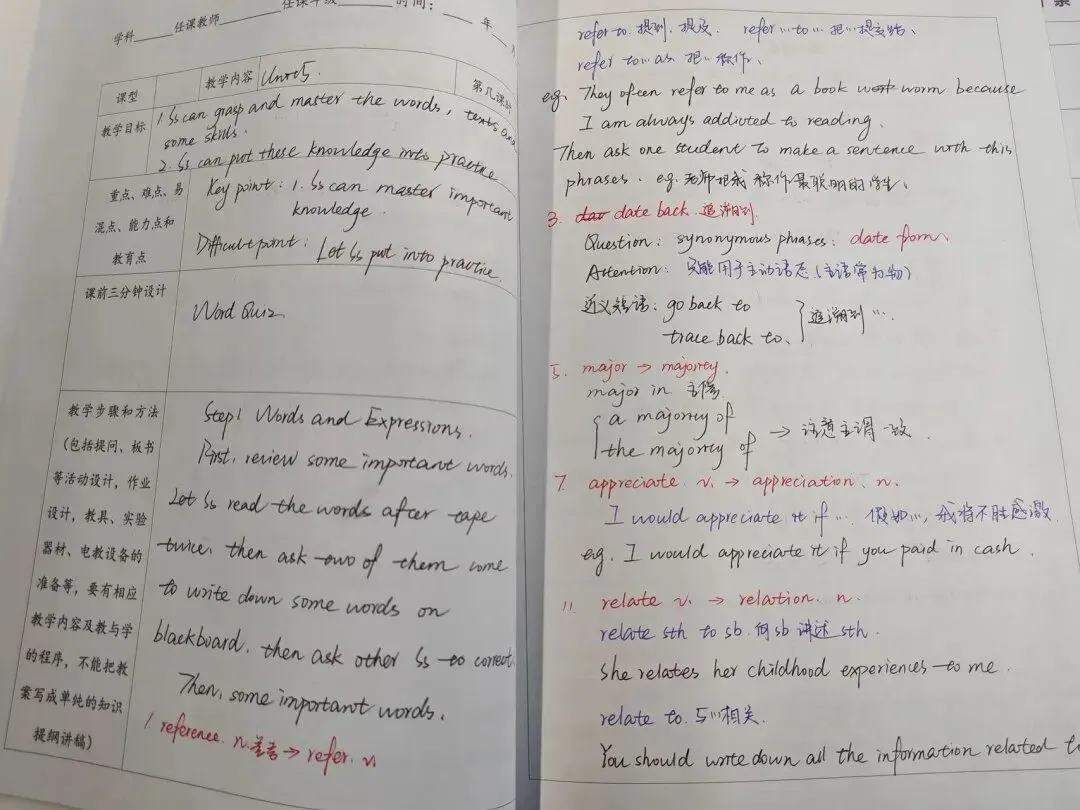 任课年级______时间：____年__
学科______任课教师______
课型
教学内容
Unit 5.
第几课时
教学目标
1. Ss can grasp and master the words, texts and
some skills.
2. Ss can put these knowledge into practice
重点、难点、易
混点、能力点和
教育点
Key point: 1. Ss can master important
knowledge.
Difficult point: Let Ss put into practice.
课前三分钟设计
Word Quiz
教学步骤和方法
（包括提问、板书
等活动设计，作业
设计，教具、实验
器材、电教设备的
准备等，要有相应
教学内容及教与学
的程序，不能把教
案写成单纯的知识
提纲讲稿）
Step1 Words and Expressions.
First, review some important words.
Let Ss read the words after tape
twice, then ask two of them come
to write down some words on
blackboard, then ask other Ss to correct.
Then, some important words.
1. reference. n.参考→ refer. v.
案
refer to. 提到. 提及. refer…to… 把…提交给、
refer to…as. 把…称作.
eg. They often refer to me as a book worm because
I am always addicted to reading.
Then ask one student to make a sentence with this
phrases. eg. 老师把我称作最聪明的学生.
3. date back 追溯到.
Question: synonymous phrases: date from.
Attention: 只能用于主动语态(主语常为物)
近义短语: go back to
trace back to. } 追溯到….
5. major → majority.
major in 主修
{ a majority of
the majority of → 注意主谓一致.
7. appreciate. v. → appreciation. n.
I would appreciate it if… 假如…, 我将不胜感激
eg. I would appreciate it if you paid in cash.
11. relate v. → relation. n.
relate sth to sb. 向sb讲述sth.
She relates her childhood experiences to me.
relate to. 与…相关.
You should write down all the information related to